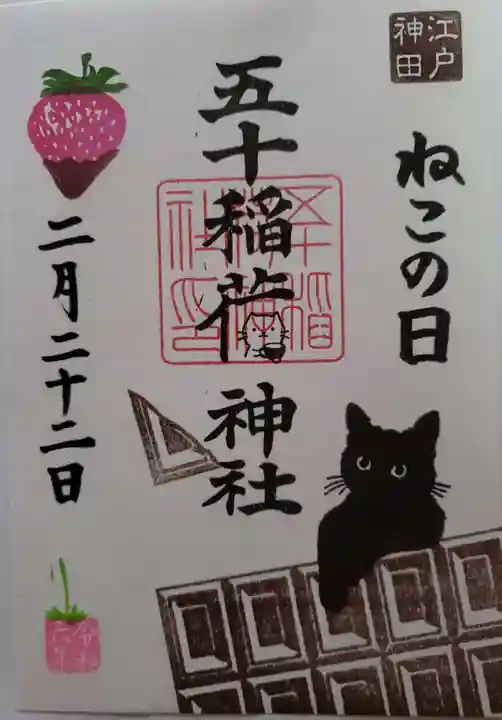 江戸
神田
ねこの日
五十稲荷神社
二月二十二日